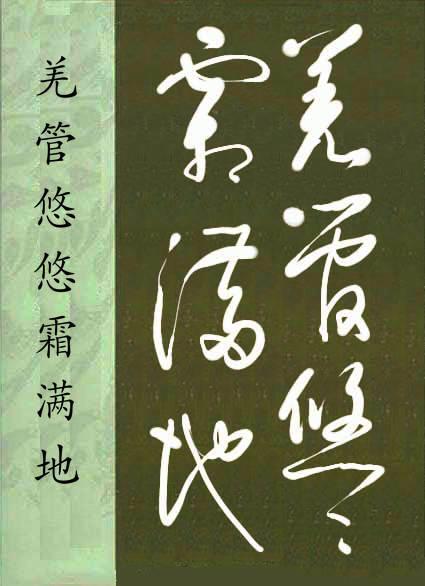 羌管悠悠
霜满地
羌管悠悠霜满地